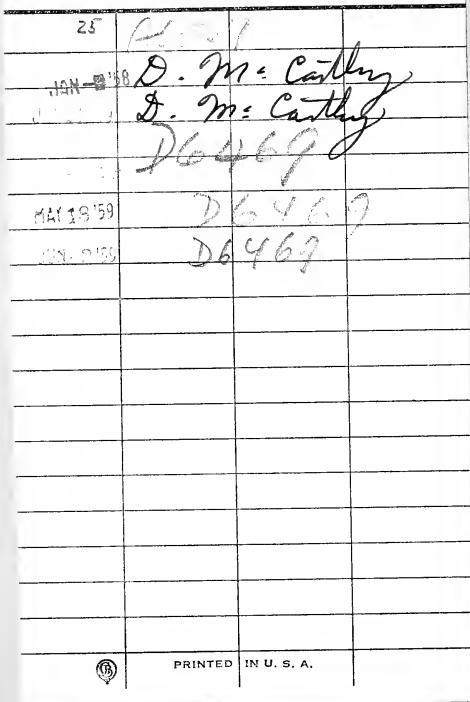 25
JAN '58 D. Mc Carthy
D. Mc Carthy
D6469
MAY 18 '59 D6469
D6469
PRINTED IN U. S. A.